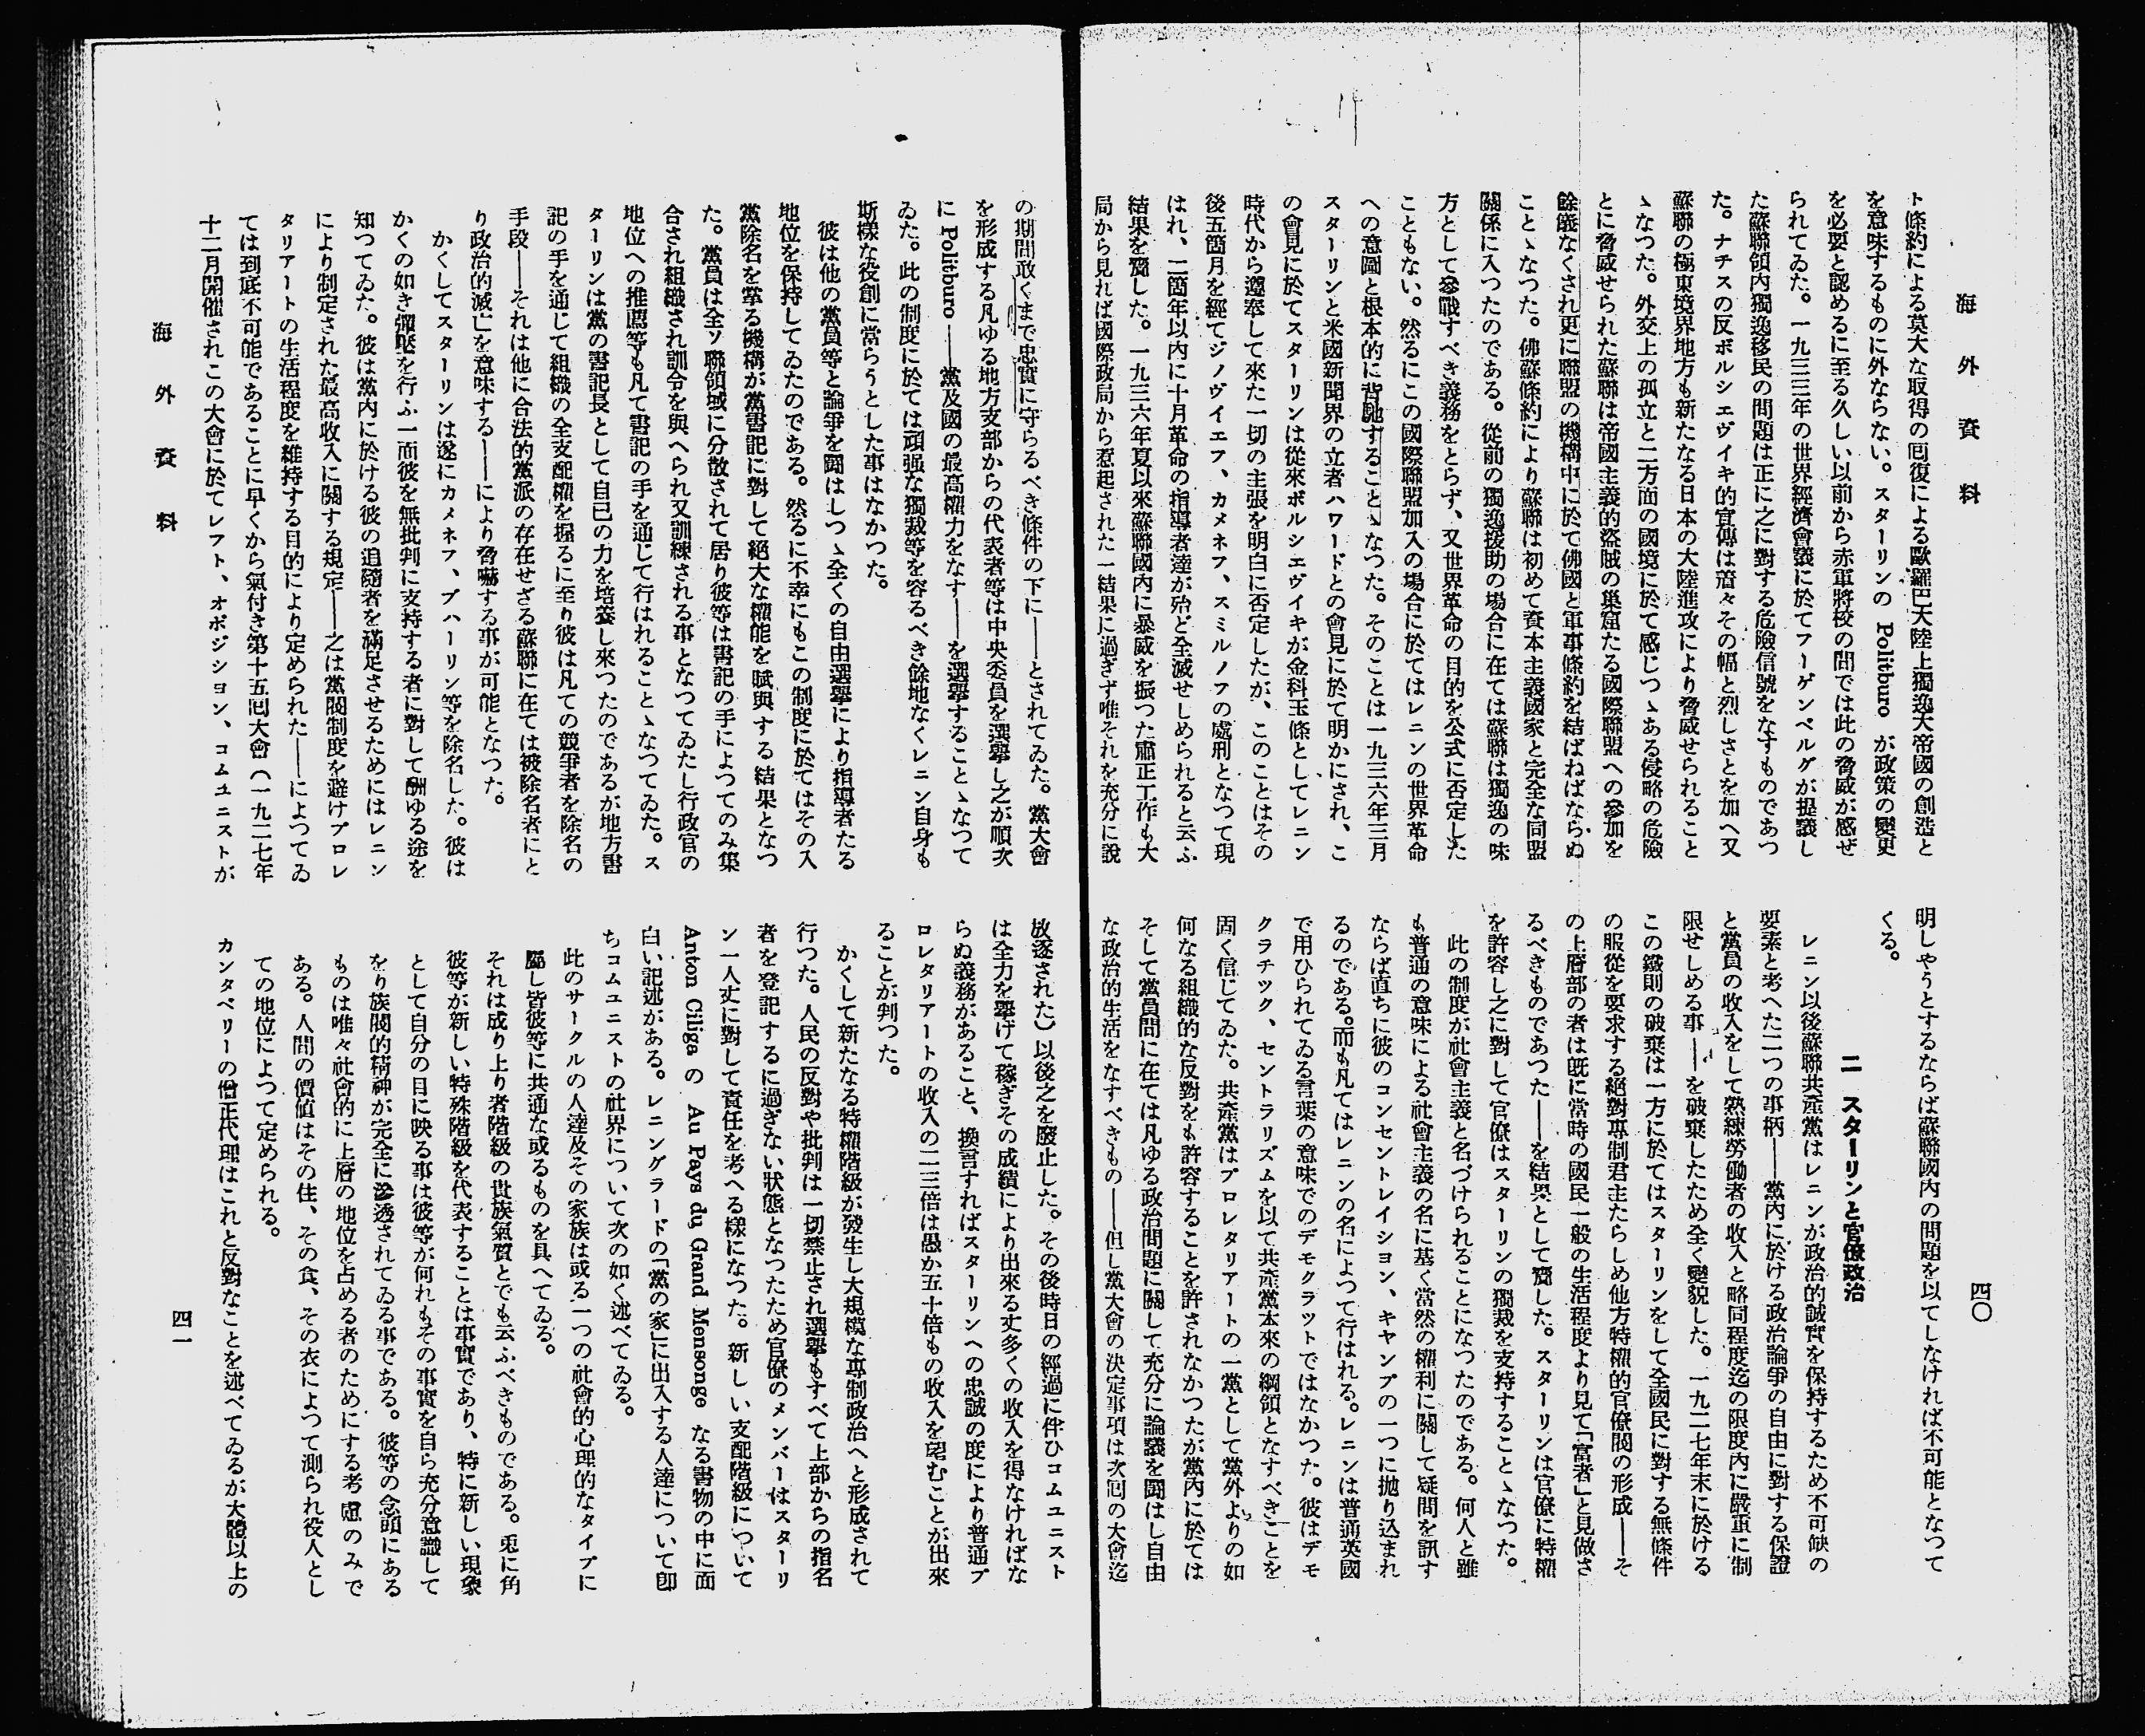 海外資料
四〇
ト條約による莫大な取得の囘復による歐羅巴大陸上獨逸大帝國の創造と
を意味するものに外ならない。スターリンの Politburo が政策の變更
を必要と認めるに至る久しい以前から赤軍將校の間では此の脅威が感ぜ
られてゐた。一九三三年の世界經濟會議に於てフーゲンベルグが提議し
た蘇聯領內獨逸移民の問題は正に之に對する危險信號をなすものであつ
た。ナチスの反ボルシエヴイキ的宣傳は着々その幅と烈しさとを加へ又
蘇聯の極東境界地方も新たなる日本の大陸進攻により脅威せられること
ゝなつた。外交上の孤立と二方面の國境に於て感じつゝある侵略の危險
とに脅威せられた蘇聯は帝國主義的盜賊の巢窟たる國際聯盟への參加を
餘儀なくされ更に聯盟の機構中に於て佛國と軍事條約を結ばねばならぬ
ことゝなつた。佛蘇條約により蘇聯は初めて資本主義國家と完全な同盟
關係に入つたのである。從前の獨逸援助の場合に在ては蘇聯は獨逸の味
方として參戰すべき義務をとらず、又世界革命の目的を公式に否定した
こともない。然るにこの國際聯盟加入の場合に於てはレニンの世界革命
への意圖と根本的に背馳することゝなつた。そのことは一九三六年三月
スターリンと米國新聞界の立者ハワードとの會見に於て明かにされ、こ
の會見に於てスターリンは從來ボルシエヴイキが金科玉條としてレニン
時代から遵奉して來た一切の主張を明白に否定したが、このことはその
後五箇月を經てジノヴイエフ、カメネフ、スミルノフの處刑となつて現
はれ、二箇年以內に十月革命の指導者達が殆ど全滅せしめられると云ふ
結果を齎した。一九三六年夏以來蘇聯國內に暴威を振つた肅正工作も大
局から見れば國際政局から惹起された一結果に過ぎず唯それを充分に說
明しやうとするならば蘇聯國內の問題を以てしなければ不可能となつて
くる。
二 スターリンと官僚政治
レニン以後蘇聯共產黨はレニンが政治的誠實を保持するため不可缺の
要素と考へた二つの事柄――黨內に於ける政治論爭の自由に對する保證
と黨員の收入をして熟練勞働者の收入と略同程度迄の限度內に嚴重に制
限せしめる事――を破棄したため全く變貌した。一九二七年末に於ける
この鐵則の破棄は一方に於てはスターリンをして全國民に對する無條件
の服從を要求する絕對專制君主たらしめ他方特權的官僚閥の形成――そ
の上層部の者は旣に當時の國民一般の生活程度より見て「富者」と見做さ
るべきものであつた――を結果として齎した。スターリンは官僚に特權
を許容し之に對して官僚はスターリンの獨裁を支持することゝなつた。
此の制度が社會主義と名づけられることになつたのである。何人と雖
も普通の意味による社會主義の名に基く當然の權利に關して疑問を訊す
ならば直ちに彼のコンセントレイシヨン、キヤンプの一つに拋り込まれ
るのである。而も凡てはレニンの名によつて行はれる。レニンは普通英國
で用ひられてゐる言葉の意味でのデモクラットではなかつた。彼はデモ
クラチック、セントラリズムを以て共產黨本來の綱領となすべきことを
固く信じてゐた。共產黨はプロレタリアートの一黨として黨外よりの如
何なる組織的な反對をも許容することを許されなかつたが黨內に於ては
そして黨員間に在ては凡ゆる政治問題に關して充分に論議を鬪はし自由
な政治的生活をなすべきもの――但し黨大會の決定事項は次囘の大會迄
の期間敢くまで忠實に守らるべき條件の下に――とされてゐた。黨大會
を形成する凡ゆる地方支部からの代表者等は中央委員を選擧し之が順次
に Politburo ――黨及國の最高權力をなす――を選擧することゝなつて
ゐた。此の制度に於ては頑强な獨裁等を容るべき餘地なくレニン自身も
斯樣な役創に當らうとした事はなかつた。
彼は他の黨員等と論爭を鬪はしつゝ全くの自由選擧により指導者たる
地位を保持してゐたのである。然るに不幸にもこの制度に於てはその入
黨除名を掌る機構が黨書記に對して絕大な權能を賦與する結果となつ
た。黨員は全ソ聯領域に分散されて居り彼等は書記の手によつてのみ集
合され組織され訓令を與へられ又訓練される事となつてゐたし行政官の
地位への推薦等も凡て書記の手を通じて行はれることゝなつてゐた。ス
ターリンは黨の書記長として自己の力を培養し來つたのであるが地方書
記の手を通じて組織の全支配權を握るに至り彼は凡ての競爭者を除名の
手段――それは他に合法的黨派の存在せざる蘇聯に在ては被除名者にと
り政治的滅亡を意味する――により脅嚇する事が可能となつた。
かくしてスターリンは遂にカメネフ、ブハーリン等を除名した。彼は
かくの如き彈壓を行ふ一面彼を無批判に支持する者に對して酬ゆる途を
知つてゐた。彼は黨內に於ける彼の追隨者を滿足させるためにはレニン
により制定された最高收入に關する規定――之は黨閥制度を避けプロレ
タリアートの生活程度を維持する目的により定められた――によつてゐ
ては到底不可能であることに早くから氣付き第十五囘大會(一九二七年
十二月開催されこの大會に於てレフト、オポジシヨン、コムユニストが
放逐された)以後之を廢止した。その後時日の經過に伴ひコムユニスト
は全力を擧げて稼ぎその成績により出來る丈多くの收入を得なければな
らぬ義務があること、換言すればスターリンへの忠誠の度により普通プ
ロレタリアートの收入の二三倍は愚か五十倍もの收入を望むことが出來
ることが判つた。
かくして新たなる特權階級が發生し大規模な專制政治へと形成されて
行つた。人民の反對や批判は一切禁止され選擧もすべて上部からの指名
者を登記するに過ぎない狀態となつたため官僚のメンバーはスターリ
ン一人丈に對して責任を考へる樣になつた。新しい支配階級について
Anton Ciliga の Au Pays du Grand Mensonge なる書物の中に面
白い記述がある。レニングラードの「黨の家」に出入する人達について卽
ちコムユニストの社界について次の如く述べてゐる。
此のサークルの人達及その家族は或る一つの社會的心理的なタイプに
屬し皆彼等に共通な或るものを具へてゐる。
それは成り上り者階級の貴族氣質とでも云ふべきものである。兎に角
彼等が新しい特殊階級を代表することは事實であり、特に新しい現象
として自分の目に映る事は彼等が何れもその事實を自ら充分意識して
をり族閥的精神が完全に滲透されてゐる事である。彼等の念頭にある
ものは唯々社會的に上層の地位を占める者のためにする考慮のみで
ある。人間の價値はその住、その食、その衣によつて測られ役人とし
ての地位によつて定められる。
カンタベリーの僧正代理はこれと反對なことを述べてゐるが大體以上の
海外資料
四一